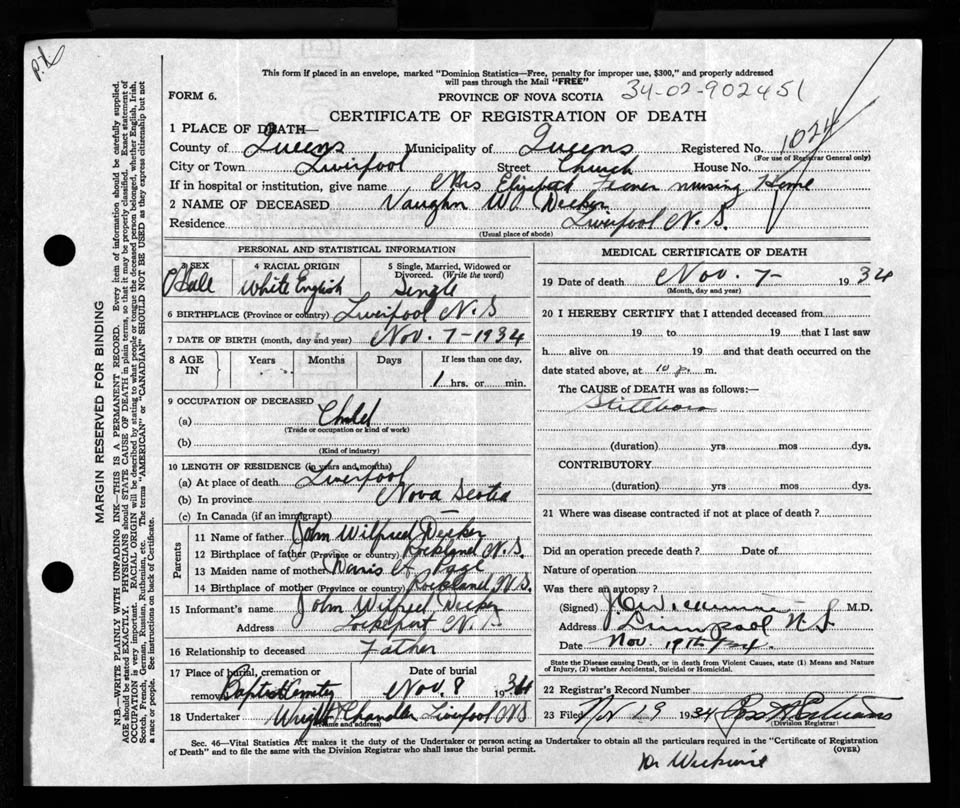 This form if placed in an envelope, marked "Dominion Statistics—Free, penalty for improper use, $300," and properly addressed
will pass through the Mail "FREE"
FORM 6.
PROVINCE OF NOVA SCOTIA
34-02-902451
CERTIFICATE OF REGISTRATION OF DEATH
1 PLACE OF DEATH—
County of Queens Municipality of Queens Registered No. 1024
(For use of Registrar General only)
City or Town Liverpool Street Church House No.
If in hospital or institution, give name Mrs Elizabeth nursing Home
2 NAME OF DECEASED Vaughn W Decker
Residence Liverpool N.S.
(Usual place of abode)
PERSONAL AND STATISTICAL INFORMATION
3 SEX 4 RACIAL ORIGIN 5 Single, Married, Widowed or Divorced. (Write the word)
Male White English Single
6 BIRTHPLACE (Province or country) Liverpool N.S
7 DATE OF BIRTH (month, day and year) Nov. 7-1934
8 AGE IN Years Months Days If less than one day,
1 hrs. or min.
9 OCCUPATION OF DECEASED
(a) Child
(Trade or occupation or kind of work)
(b)
(Kind of industry)
10 LENGTH OF RESIDENCE (in years and months)
(a) At place of death Liverpool
(b) In province Nova Scotia
(c) In Canada (if an immigrant)
Parents
11 Name of father John Wilfred Decker
12 Birthplace of father (Province or country) Rockland N.S.
13 Maiden name of mother Page
14 Birthplace of mother (Province or country) Rockland, N.S.
15 Informant's name John Wilfred Decker
Address Lockeport N.S
16 Relationship to deceased Father
17 Place of burial, cremation or removal Baptist Cemetery Date of burial Nov 8 1934
18 Undertaker Wright Chandler Liverpool NS
(Name and address)
MEDICAL CERTIFICATE OF DEATH
19 Date of death Nov. 7- 1934
(Month, day and year)
20 I HEREBY CERTIFY that I attended deceased from
19 to 19 that I last saw
h alive on 19 and that death occurred on the
date stated above, at 10 P. m.
The CAUSE OF DEATH was as follows:—
Stillborn
(duration) yrs mos dys.
CONTRIBUTORY
(duration) yrs. mos dys.
21 Where was disease contracted if not at place of death?
Did an operation precede death? Date of
Nature of operation
Was there an autopsy?
(Signed) M.D.
Address Liverpool N.S.
Date Nov. 19th/34.
State the Disease causing Death, or in death from Violent Causes, state (1) Means and Nature
of Injury, (2) whether Accidental, Suicidal or Homicidal.
22 Registrar's Record Number
23 Filed Nov 19 1934
(Division Registrar)
Sec. 46—Vital Statistics Act makes it the duty of the Undertaker or person acting as Undertaker to obtain all the particulars required in the "Certificate of Registration
of Death" and to file the same with the Division Registrar who shall issue the burial permit.
(OVER)
Dr
MARGIN RESERVED FOR BINDING
N.B.—WRITE PLAINLY WITH UNFADING INK—THIS IS A PERMANENT RECORD. Every item of information should be carefully supplied.
AGE should be stated EXACTLY. PHYSICIANS should STATE CAUSE OF DEATH in plain terms, so that it may be properly classified. Exact statement of
OCCUPATION is very important. RACIAL ORIGIN will be described by stating to what people or tongue the deceased person belonged, whether English, Irish,
Scotch, French, German, Russian, Ruthenian, etc. The terms "AMERICAN" or "CANADIAN" SHOULD NOT BE USED as they express citizenship but not
a race or people. See instructions on back of Certificate.